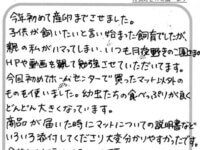 今年初めて産卵までさせました。
子供が飼いたいと言い始まった飼育でしたが、
親の私がハマってしまい、いつも月夜野きのこ園さまの
HPや動画を観て勉強させていただいてます。
今回初めてホームセンターで買ったマット以外の
ものを使いました。幼虫たちの食べっぷりが良く
どんどん大きくなっています。
商品が届いた時にマットについての説明書など
いろいろ添付してくださり大変分かりやすかったです。